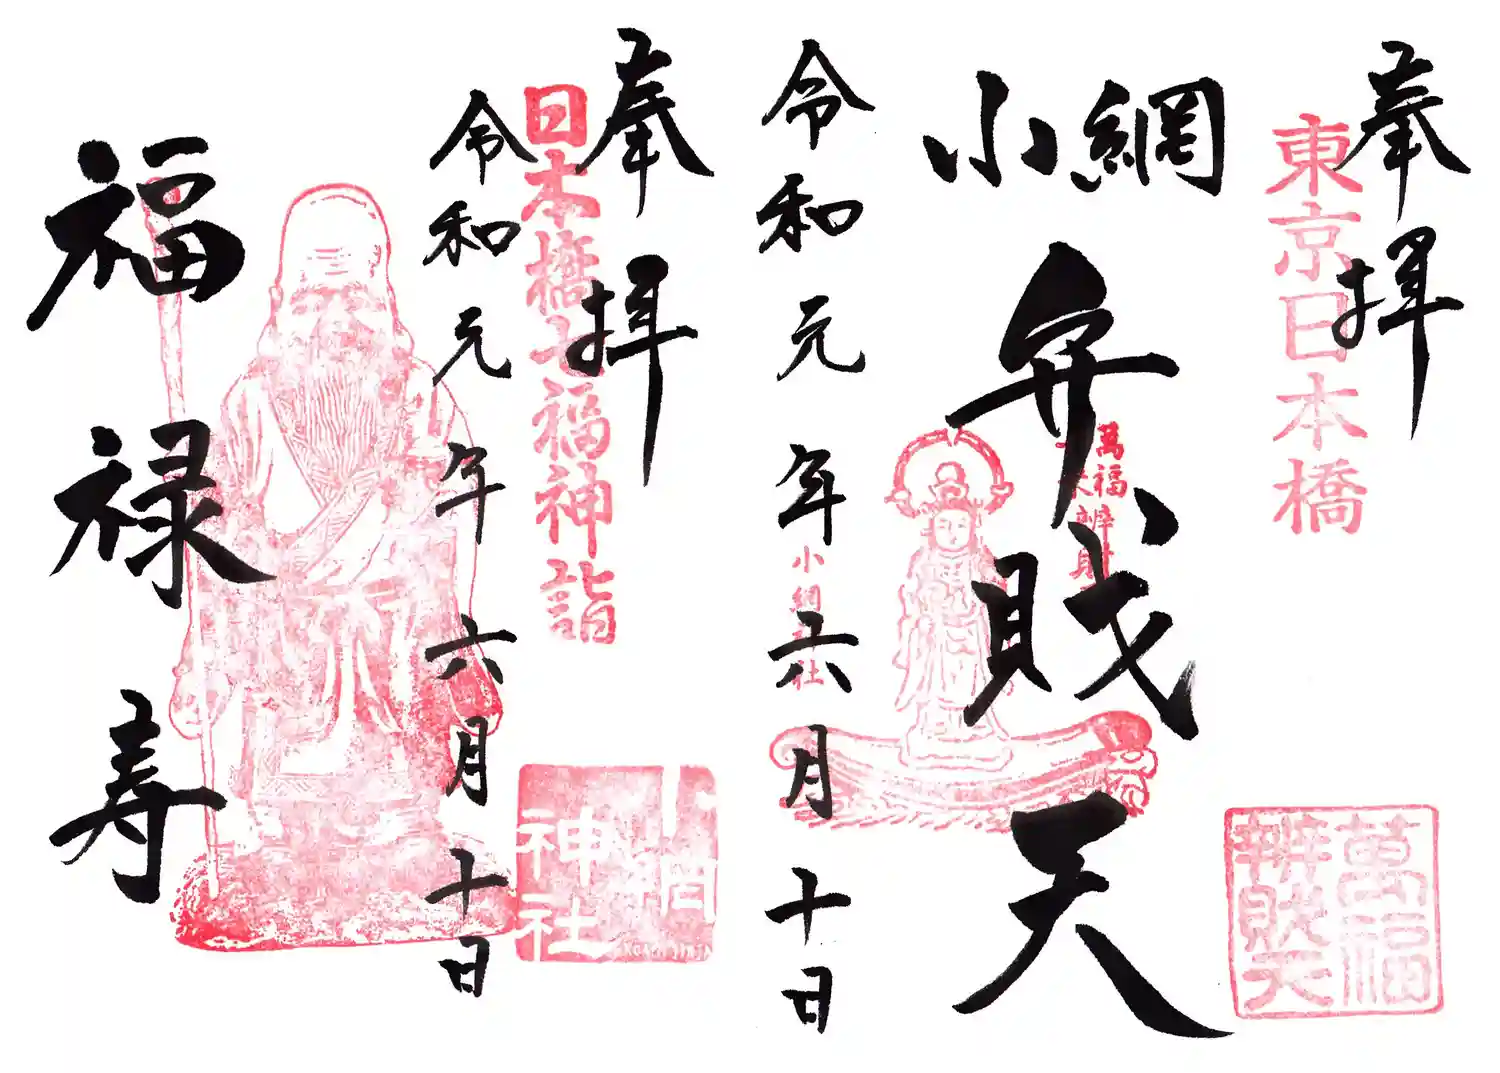 奉拝
東京日本橋
小網
弁財天
萬福
辨財
小網
社
令和元年六月十日
萬福
辨財天
奉拝
日本橋七福神詣
令和元年六月十日
福禄寿
小網
神社